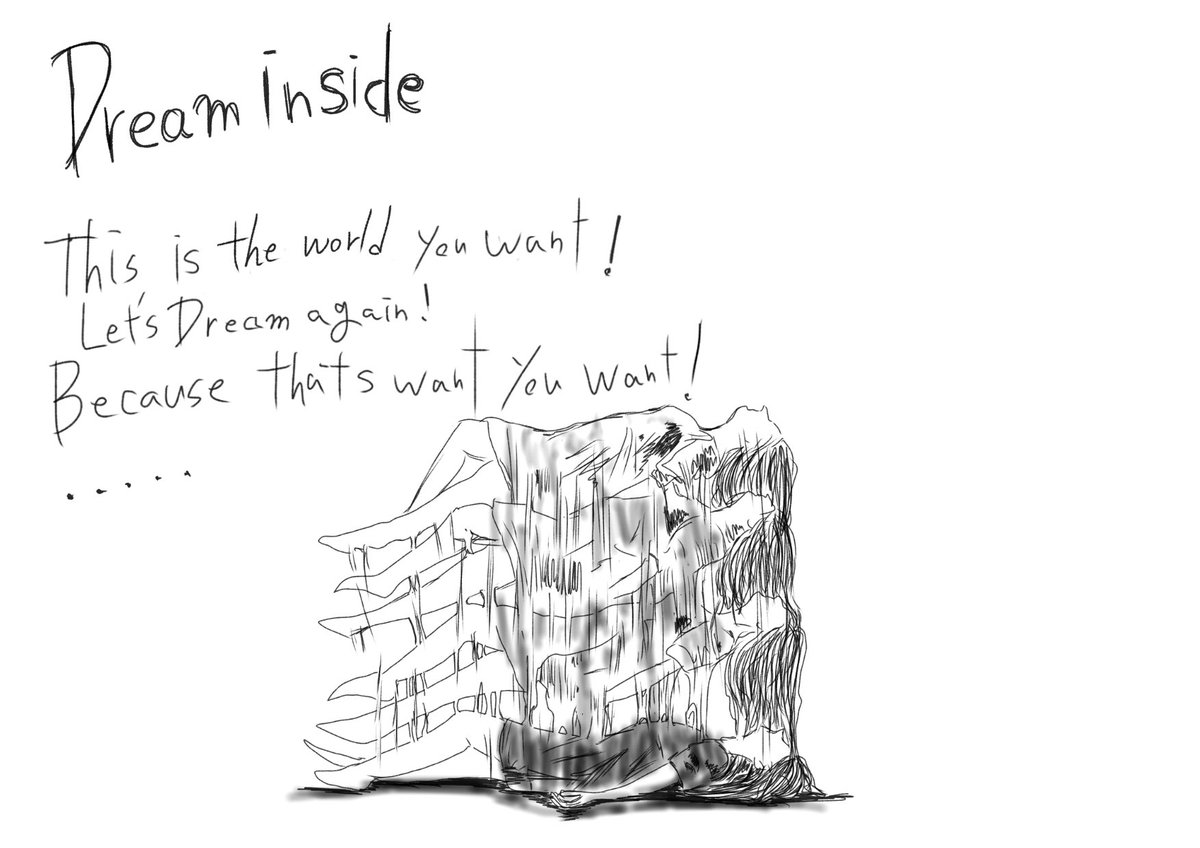 Dream inside
This is the world you want!
Let's Dream again!
Because that's want you want!
.....